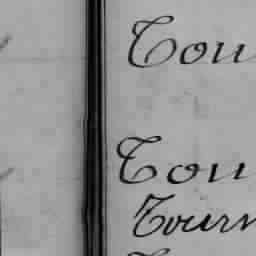 Tou
Tou
Tourn